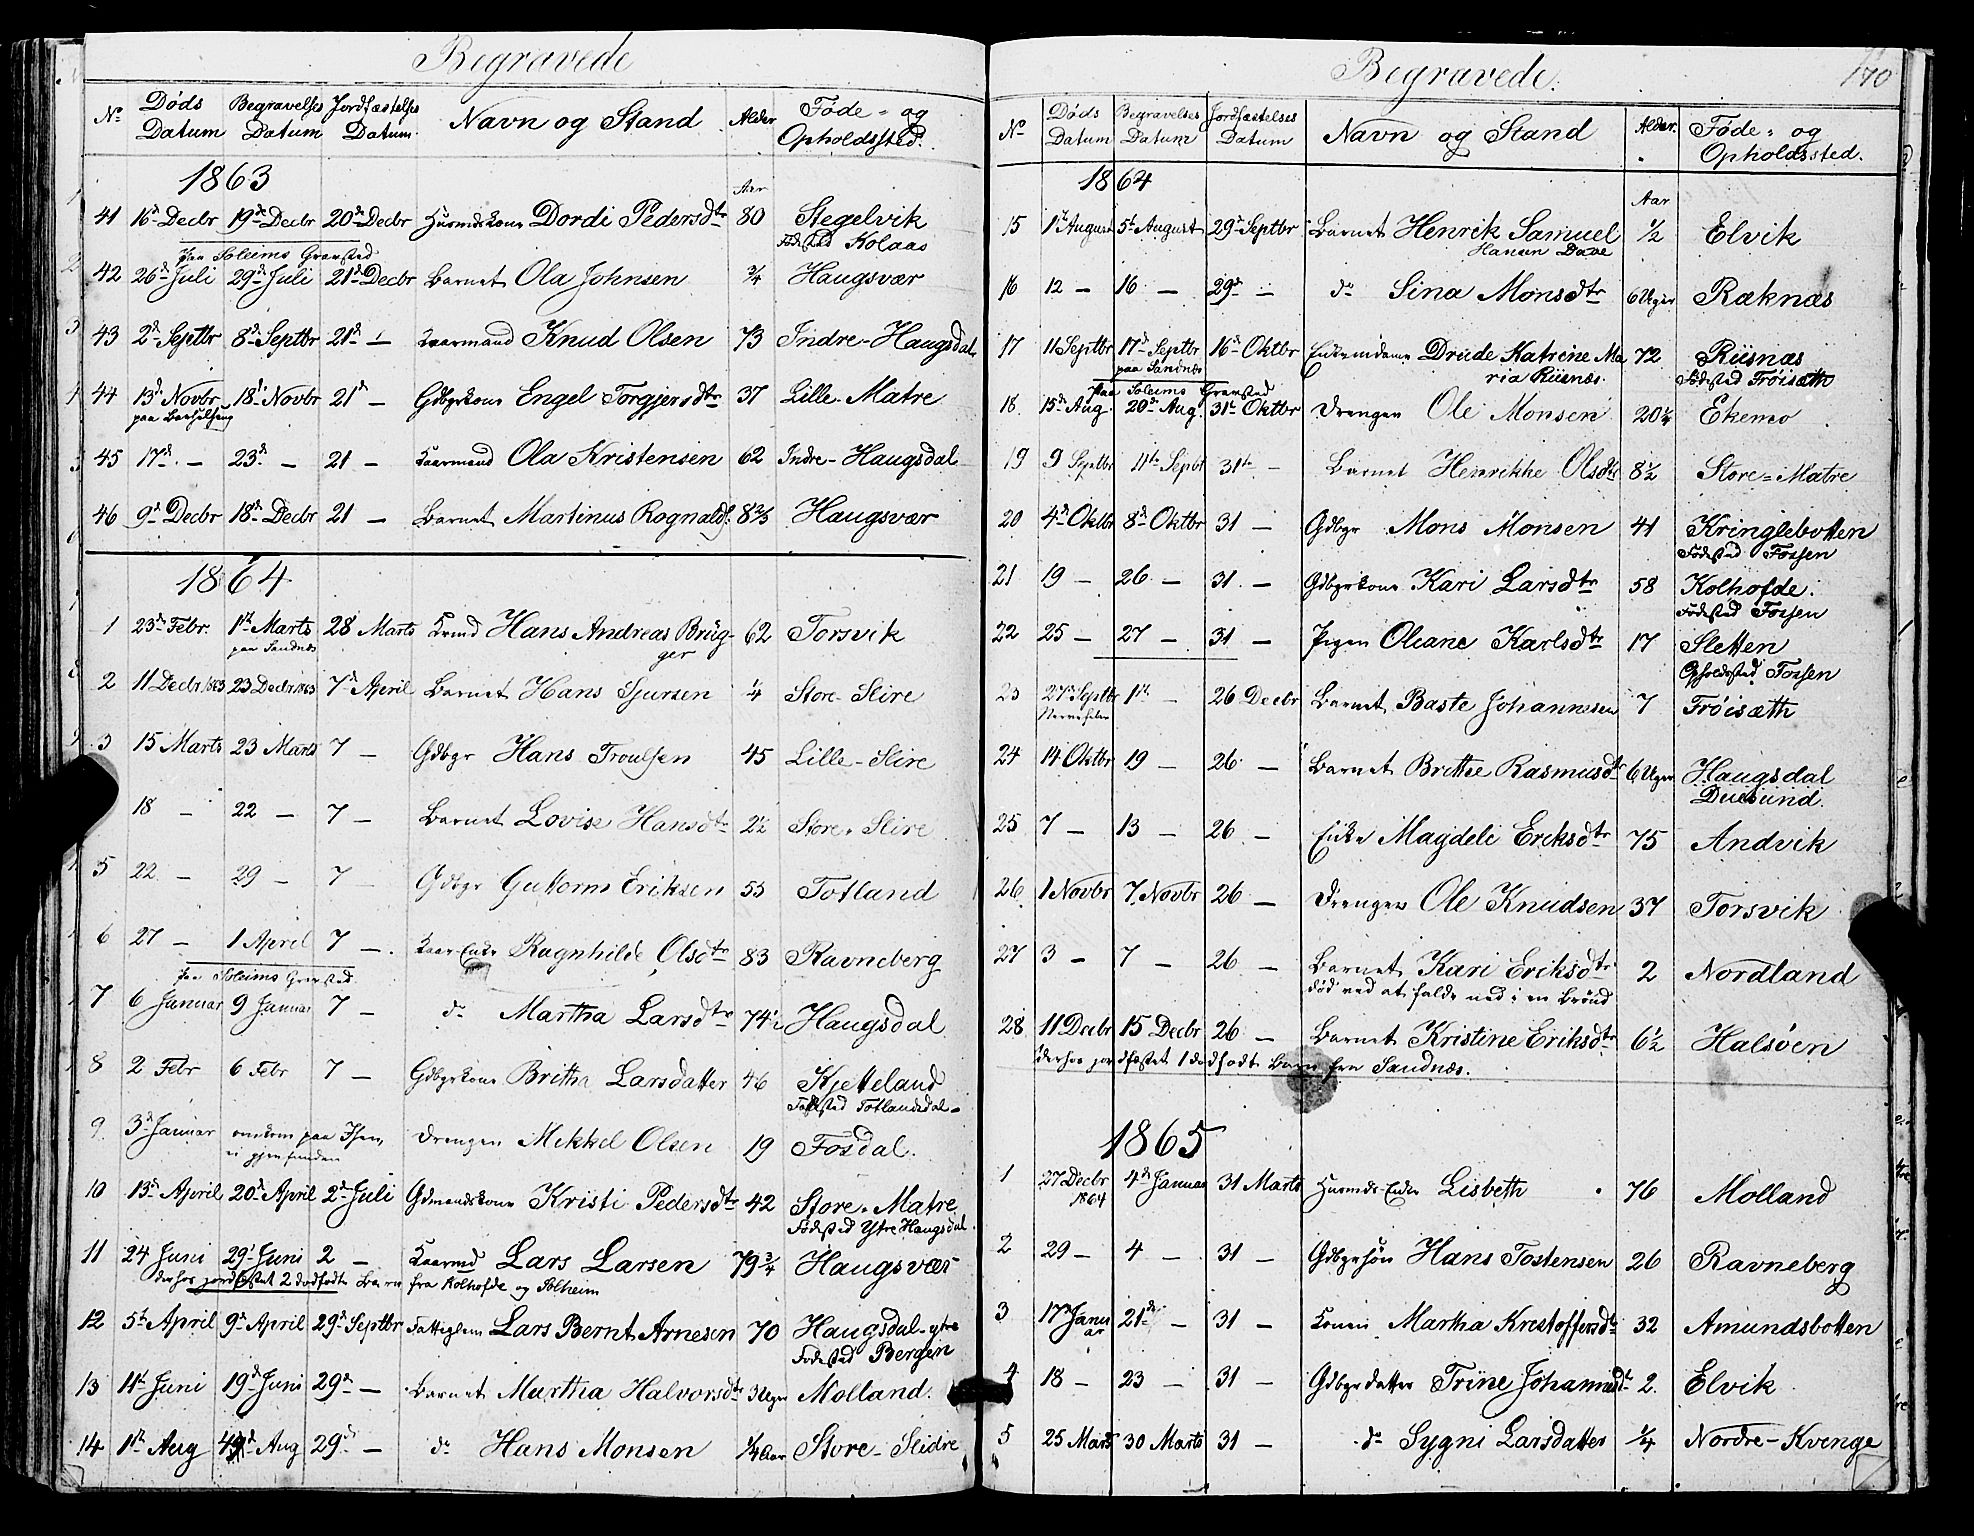 Begravede
No Døds Datum Begravelses Datum Jordfæstelses Datum Navn og Stand Alder Føde- og Opholdssted.
1863
Aar
41 16d Decbr 19de Decbr 20de Decbr Husmdskone Dordi Pedersdtr 80 Stegelvik
Fødested Kolaas
paa Soleims Gravsted
42 26d Juli 29d Juli 21d Decbr Barnet Ola Johnsen 3/4 Haugsvær
43 2d Septbr 8d Septbr 21d — Kaarmand Knud Olsen 73 Indre-Haugsdal
44 13d Novbr 18d Novbr 21d — Gdbgrkone Engel Torgjersdtr 37 Lille-Matre
45 17d — 23d — 21 — Kaarmand Ola Kristensen 62 Indre-Haugsdal
46 9d Decbr 18d Decbr 21 — Barnet Martinus Rognalds. 8 2/3 Haugsvær
1864
1 23d Febr. 1st Marts 28 Marts Kmd Hans Andreas Brüg- 62 Torsvik
paa Sandnes ger
2 11 Decbr 1863 23 Decbr 1863 7d April Barnet Hans Sjursen 1/4 Store-Slire
3 15 Marts 23 Marts 7 — Gdbgr Hans Troulsen 45 Lille-Slire
18 — 22 — 7 — Barnet Lovise Hansdtr 2 1/2 Store-Slire
5 22 — 29 — 7 — Gdbgr Guttorm Eriksen 55 Totland
6 27 — 1 April 7 — Kaar Enke Ragnhilde Olsdtr 83 Ravneberg
paa Soleims Gravsted
7 6 Januar 9 Januar 7 — do Martha Larsdtr 74 1/2 Haugsdal
8 2 Febr 6 Febr 7 — Gdbgrkone Britha Larsdatter 46 Kjetteland
Fødested Totlandsdal
9. 3d Januar omkom paa Isen, Drengen Mikkel Olsen 19 Fosdal.
ei gjenfunden
10 13d April 20d April 2d Juli Gdmandskone Kristi Pedersdtr 42 Store-Matre
Fødested Ytre Haugsdal
11 24 Juni 29 Juni 2 — Kaarmd Lars Larsen 79 3/4 Haugsvær
derhos jordfæstet 2 dødfødte Børn fra Kolhofde og Solheim
12 5t April 9d April 29d Septbr Fattiglem Lars Bernt Arnesen 70 Haugsdal-ytre
Fødested Bergen
13 11t Juni 19d Juni 29d — Barnet Martha Halvorsdtr 3 Uger Molland.
14 1st Aug 4d Aug 29d — do Hans Monsen 1/4 Aar Store-Slidre
Begravede.
170
No Døds Datum Begravelses Datum Jordfæstelses Datum Navn og Stand Alder. Føde- og Opholdssted.
1864
Aar
15 1st August 5t August 29d Septbr Barnet Henrik Samuel 1/2 Elvik
Hansen Daae
16 12 — 16 — 29d — do Sina Monsdtr 6 Uger Raknæs
17 11 Septbr 17d Septbr 16d Oktbr Enkemadame Drude Katrine Ma 72 Riisnæs
paa Sandnes ria Riisnæs. Fødested Frøisæth
paa Soleims Gravsted
18. 15d Aug. 20d Aug. 31t Oktbr Drengen Ole Monsen 20 1/4 Ekemo
19 9 Septbr 11te Septbr 31te — Barnet Henrikke Olsdtr 8 1/2 Store-Matre
20 4d Oktbr 8d Oktbr 31 — Gdbgr Mons Monsen 41 Kringlebotten
Fødested Fossen
21 19 — 26 — 31 — Gdbgrkone Kari Larsdtr 58 Kolhofde.
Fødested Fossen
22 25 — 27 — 31 — Pigen Oliane Karlsdtr 17 Sletten
Opholdssted Fossen
23 27d Septbr 1st — 26 Decbr Barnet Baste Johannesen 7 Frøisæth
24 14 Oktbr 19 — 26 — Barnet Brithe Rasmusdtr 6 Uger Haugsdal
Duesund.
25 7 — 13 — 26 — Enke Magdeli Eriksdtr 75 Andvik
26 1 Novbr 7 Novbr 26 — Drengen Ole Knudsen 37 Torsvik
27 3 — 7 — 26 — Barnet Kari Eriksdtr 2 Nordland
død ved at falde ned i en Brønd
28 11 Decbr 15 Decbr 26 — Barnet Kristine Eriksdtr 6 1/2 Halsöen
derhos jordfæstet 1 dødfødt Barn fra Sandnæs.
1865
1 27 Decbr 4d Januar 31 Marts Husmds Enke Lisbeth 76 Molland
1864
2 29 — 4 — 31 — Gdbgrsøn Hans Tostensen 26 Ravneberg
3 17d Janu 21d — 31 — Konen Martha Kristoffersdtr 32 Amundsbotten
ar
4 18 — 23 — 31 — Gdbgrdatter Trine Johannesdtr 2. Elvik
5 25 Marts 30 Marts 31 — do Sygni Larsdatter 1/4 Nordre-Kvinge